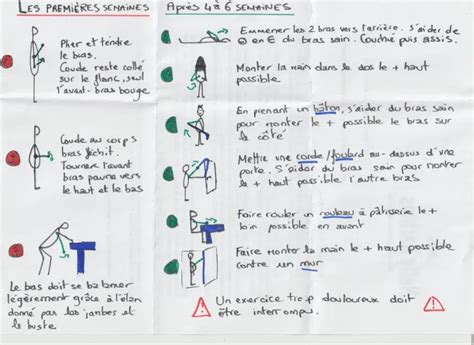 LES PREMIÈRES SEMAINES
Plier et tendre
le bras.
Coude reste collé
sur le flanc, seul
l'avant-bras bouge
Coude au corps
bras fléchit.
Tourner l'avant
bras paume vers
le haut et le bas
Le bas doit se balancer
légèrement grâce à l'élan
donné par les jambes et
le buste
APRÈS 4 à 6 SEMAINES
Emmener les 2 bras vers l'arrière. S'aider de
ou en E du bras sain. Couché puis assis.
Monter la main dans le dos le + haut
possible
En prenant un bâton, s'aider du bras sain
pour monter le + possible le bras sur
le côté
Mettre une corde/foulard au-dessus d'une
porte. S'aider du bras sain pour monter
le + haut possible l'autre bras
Faire rouler un rouleau à pâtisserie le +
loin possible en avant
Faire monter la main le + haut possible
contre un mur
Un exercice trop douloureux doit
être interrompu.